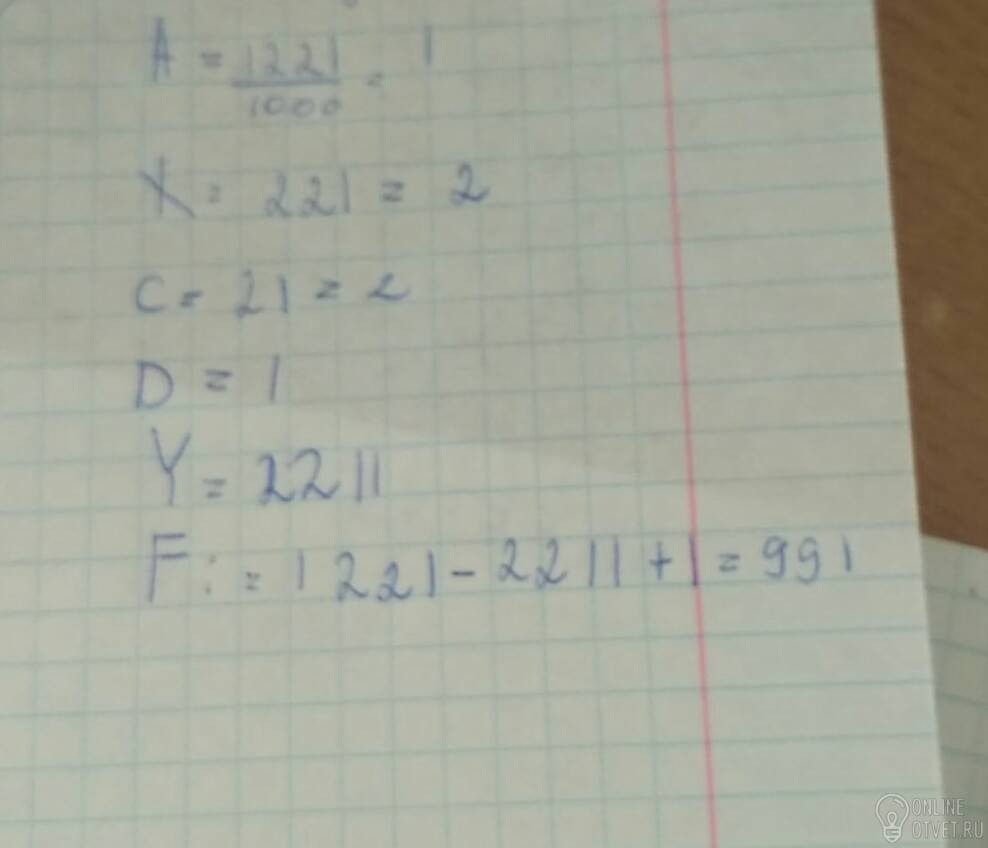 A = 1221/1000 = 1
X = 221 = 2
C = 21 = 2
D = 1
Y = 2211
F := 1221 - 2211 + 1 = 991
ONLINE
OTVET.RU